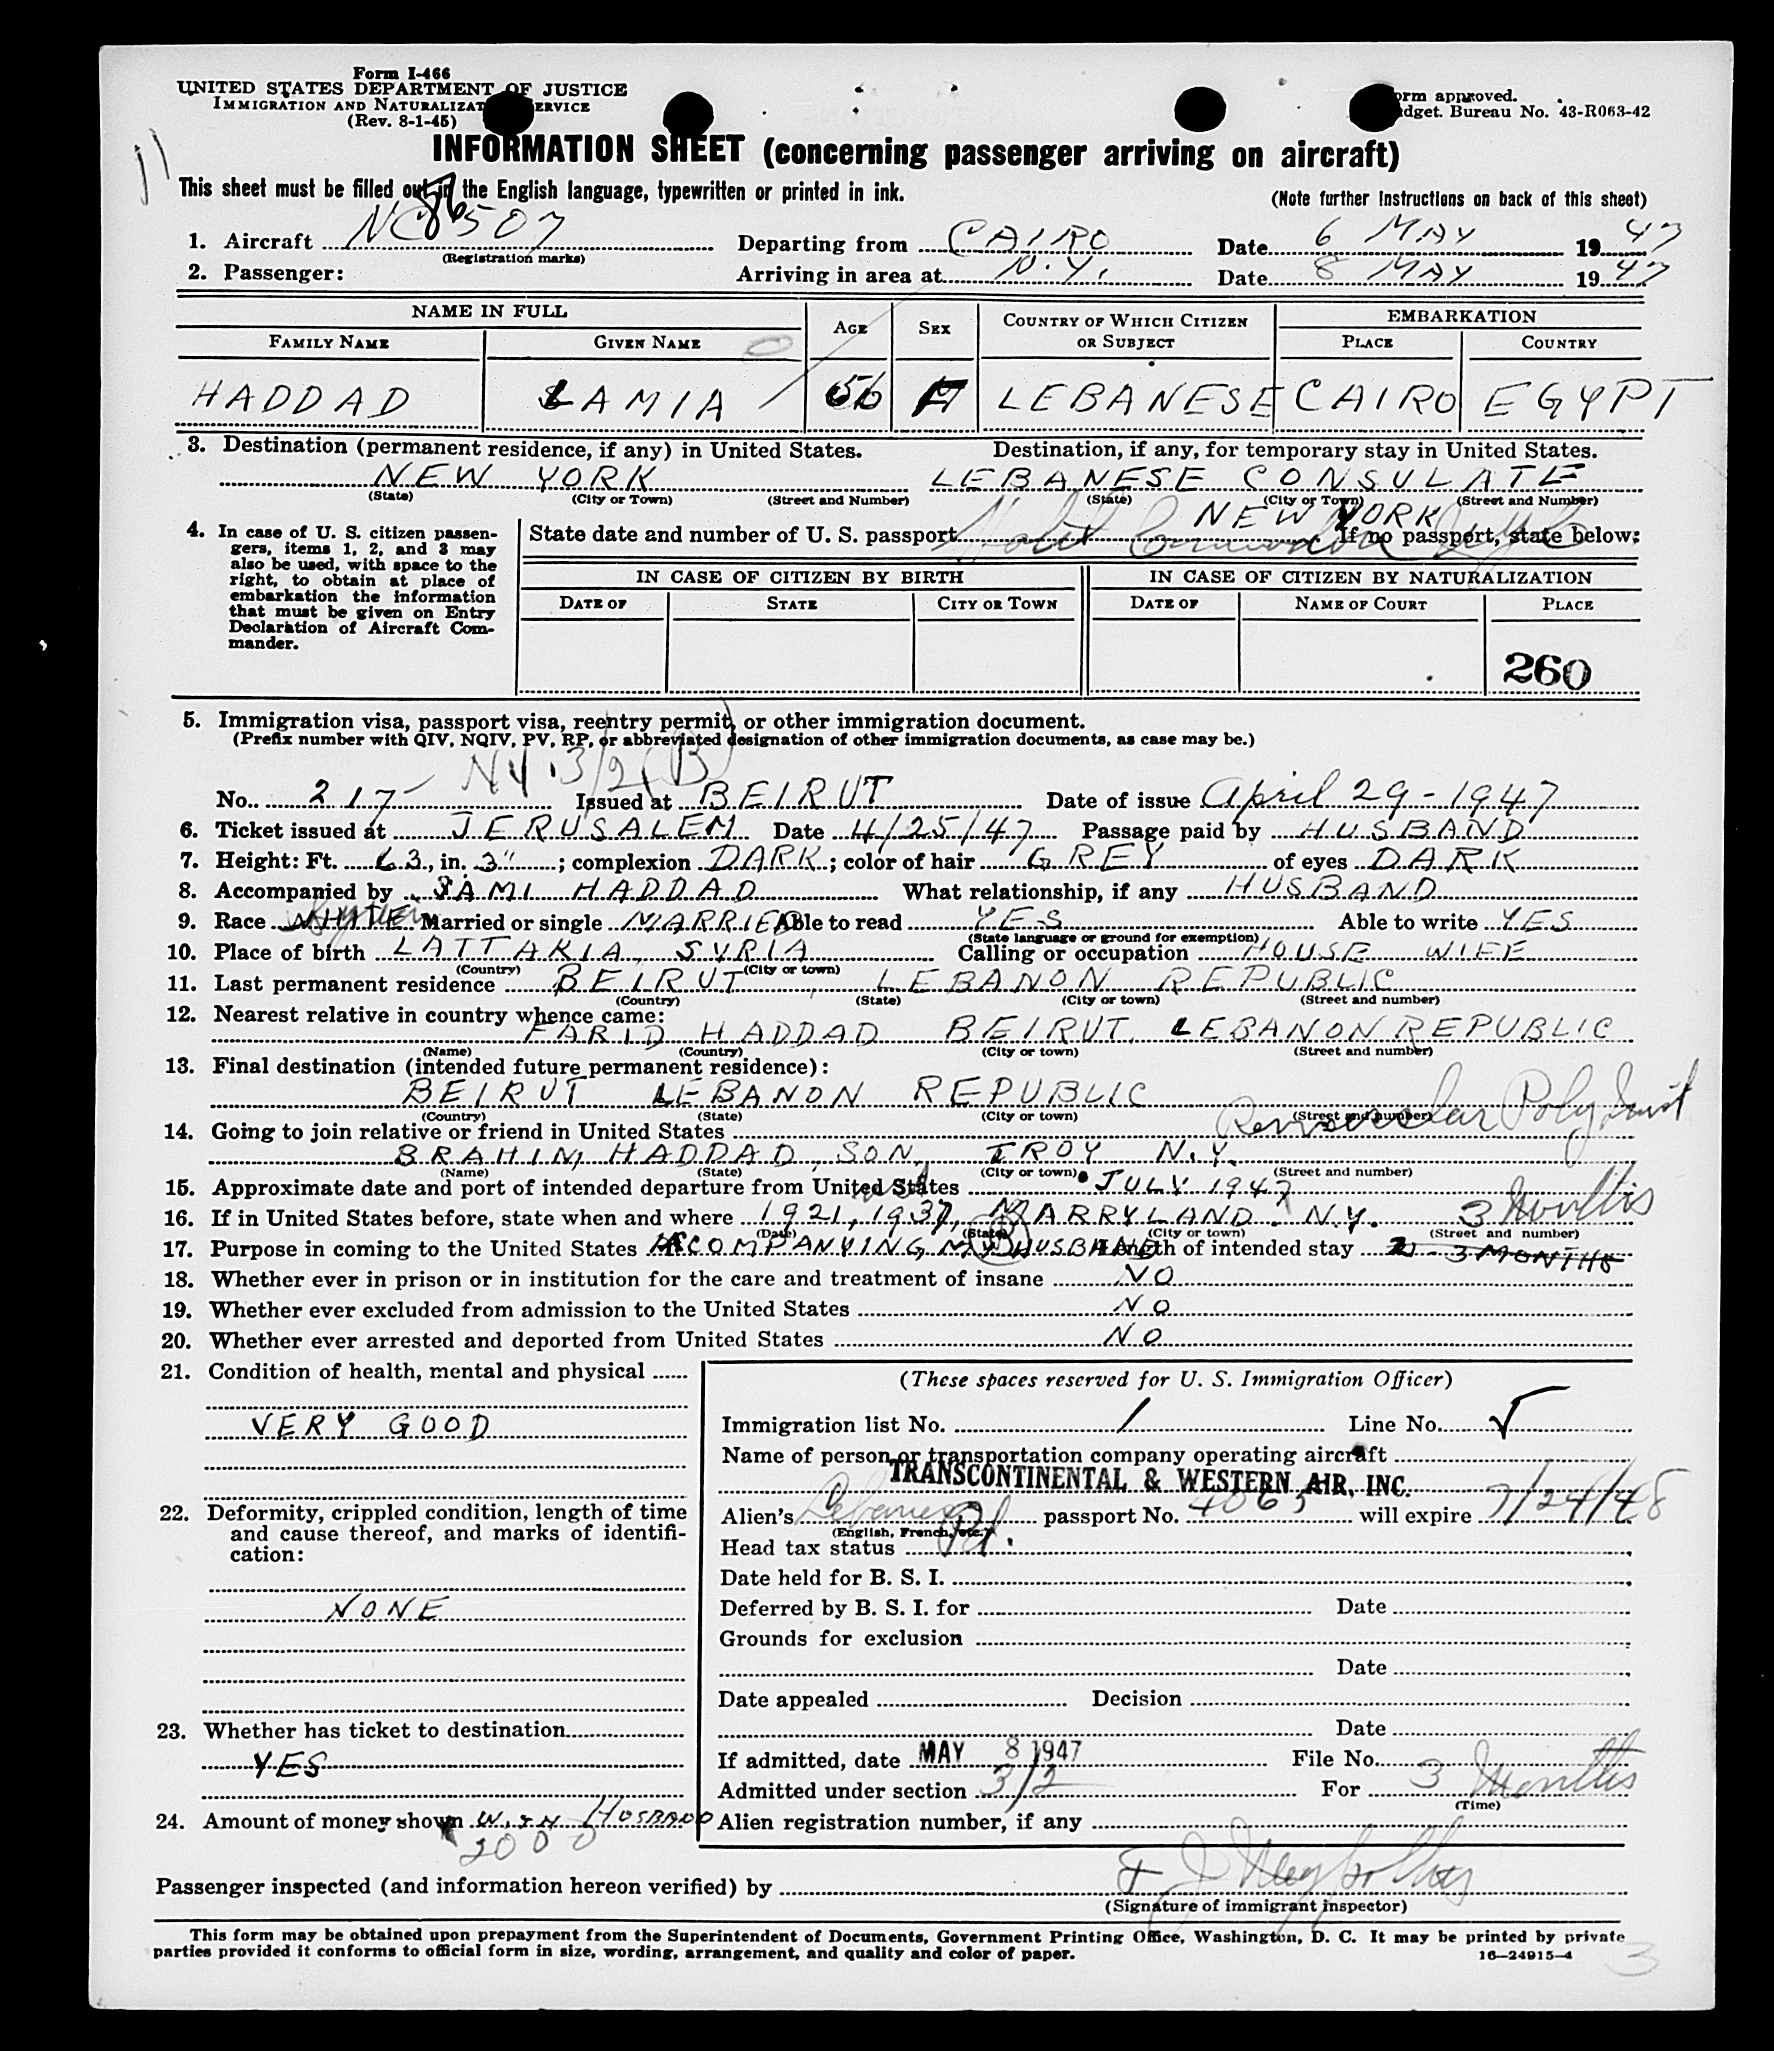 Form I-466
UNITED STATES DEPARTMENT OF JUSTICE
IMMIGRATION AND NATURALIZAT ERVICE
(Rev. 8-1-45)
orm approved.
dget Bureau No. 43-R063-42
INFORMATION SHEET (concerning passenger arriving on aircraft)
This sheet must be filled out in the English language, typewritten or printed in ink.
(Note further instructions on back of this sheet)
1. Aircraft NC86507 Departing from CAIRO Date 6 MAY 1947
(Registration marks)
2. Passenger: Arriving in area at N.Y. Date 8 MAY 1947
NAME IN FULL AGE SEX COUNTRY OF WHICH CITIZEN OR SUBJECT EMBARKATION
FAMILY NAME GIVEN NAME PLACE COUNTRY
HADDAD LAMIA 56 F LEBANESE CAIRO EGYPT
3. Destination (permanent residence, if any) in United States. Destination, if any, for temporary stay in United States.
NEW YORK LEBANESE CONSULATE
(State) (City or Town) (Street and Number) (State) (City or Town) (Street and Number)
NEW YORK
4. In case of U. S. citizen passengers, items 1, 2, and 3 may also be used, with space to the right, to obtain at place of embarkation the information that must be given on Entry Declaration of Aircraft Commander.
State date and number of U. S. passport If no passport, state below:
IN CASE OF CITIZEN BY BIRTH IN CASE OF CITIZEN BY NATURALIZATION
DATE OF STATE CITY OR TOWN DATE OF NAME OF COURT PLACE
260
5. Immigration visa, passport visa, reentry permit, or other immigration document.
(Prefix number with QIV, NQIV, PV, RP, or abbreviated designation of other immigration documents, as case may be.)
3/2 (B)
No. 217 Issued at BEIRUT Date of issue April 29-1947
6. Ticket issued at JERUSALEM Date 4/25/47 Passage paid by HUSBAND
7. Height: Ft. 63, in. 3"; complexion DARK; color of hair GREY of eyes DARK
8. Accompanied by SAMI HADDAD What relationship, if any HUSBAND
9. Race WHITE Married or single MARRIED Able to read YES Able to write YES
(State language or ground for exemption)
10. Place of birth LATTAKIA, SYRIA Calling or occupation HOUSE WIFE
(Country) (City or town)
11. Last permanent residence BEIRUT, LEBANON REPUBLIC
(Country) (State) (City or town) (Street and number)
12. Nearest relative in country whence came:
FARID HADDAD BEIRUT, LEBANON REPUBLIC
(Name) (Country) (City or town) (Street and number)
13. Final destination (intended future permanent residence):
BEIRUT LEBANON REPUBLIC
(Country) (State) (City or town) (Street and number)
14. Going to join relative or friend in United States
BRAHIM HADDAD, SON, TROY N.Y.
(Name) (State) (City or town) (Street and number)
15. Approximate date and port of intended departure from United States JULY 1947
16. If in United States before, state when and where 1921, 1937, MARRYLAND. N.Y. 3 Months
(Date) (State) (City or town) (Street and number)
17. Purpose in coming to the United States ACCOMPANYING MY HUSBAND Length of intended stay 2 - 3 MONTHS
18. Whether ever in prison or in institution for the care and treatment of insane NO
19. Whether ever excluded from admission to the United States NO
20. Whether ever arrested and deported from United States NO
21. Condition of health, mental and physical
VERY GOOD
22. Deformity, crippled condition, length of time and cause thereof, and marks of identification:
NONE
23. Whether has ticket to destination
YES
24. Amount of money shown WITH HUSBAND
2000
(These spaces reserved for U. S. Immigration Officer)
Immigration list No. 1 Line No. 5
Name of person or transportation company operating aircraft
TRANSCONTINENTAL & WESTERN AIR, INC.
Alien's Lebanese passport No. 4065 will expire 7/24/48
(English, French, etc.)
Head tax status Pd.
Date held for B. S. I.
Deferred by B. S. I. for Date
Grounds for exclusion
Date
Date appealed Decision
Date
If admitted, date MAY 8 1947 File No.
Admitted under section 3/2 For 3 Months
(Time)
Alien registration number, if any
Passenger inspected (and information hereon verified) by
(Signature of immigrant inspector)
This form may be obtained upon prepayment from the Superintendent of Documents, Government Printing Office, Washington, D. C. It may be printed by private
parties provided it conforms to official form in size, wording, arrangement, and quality and color of paper.
16—24915-4
3